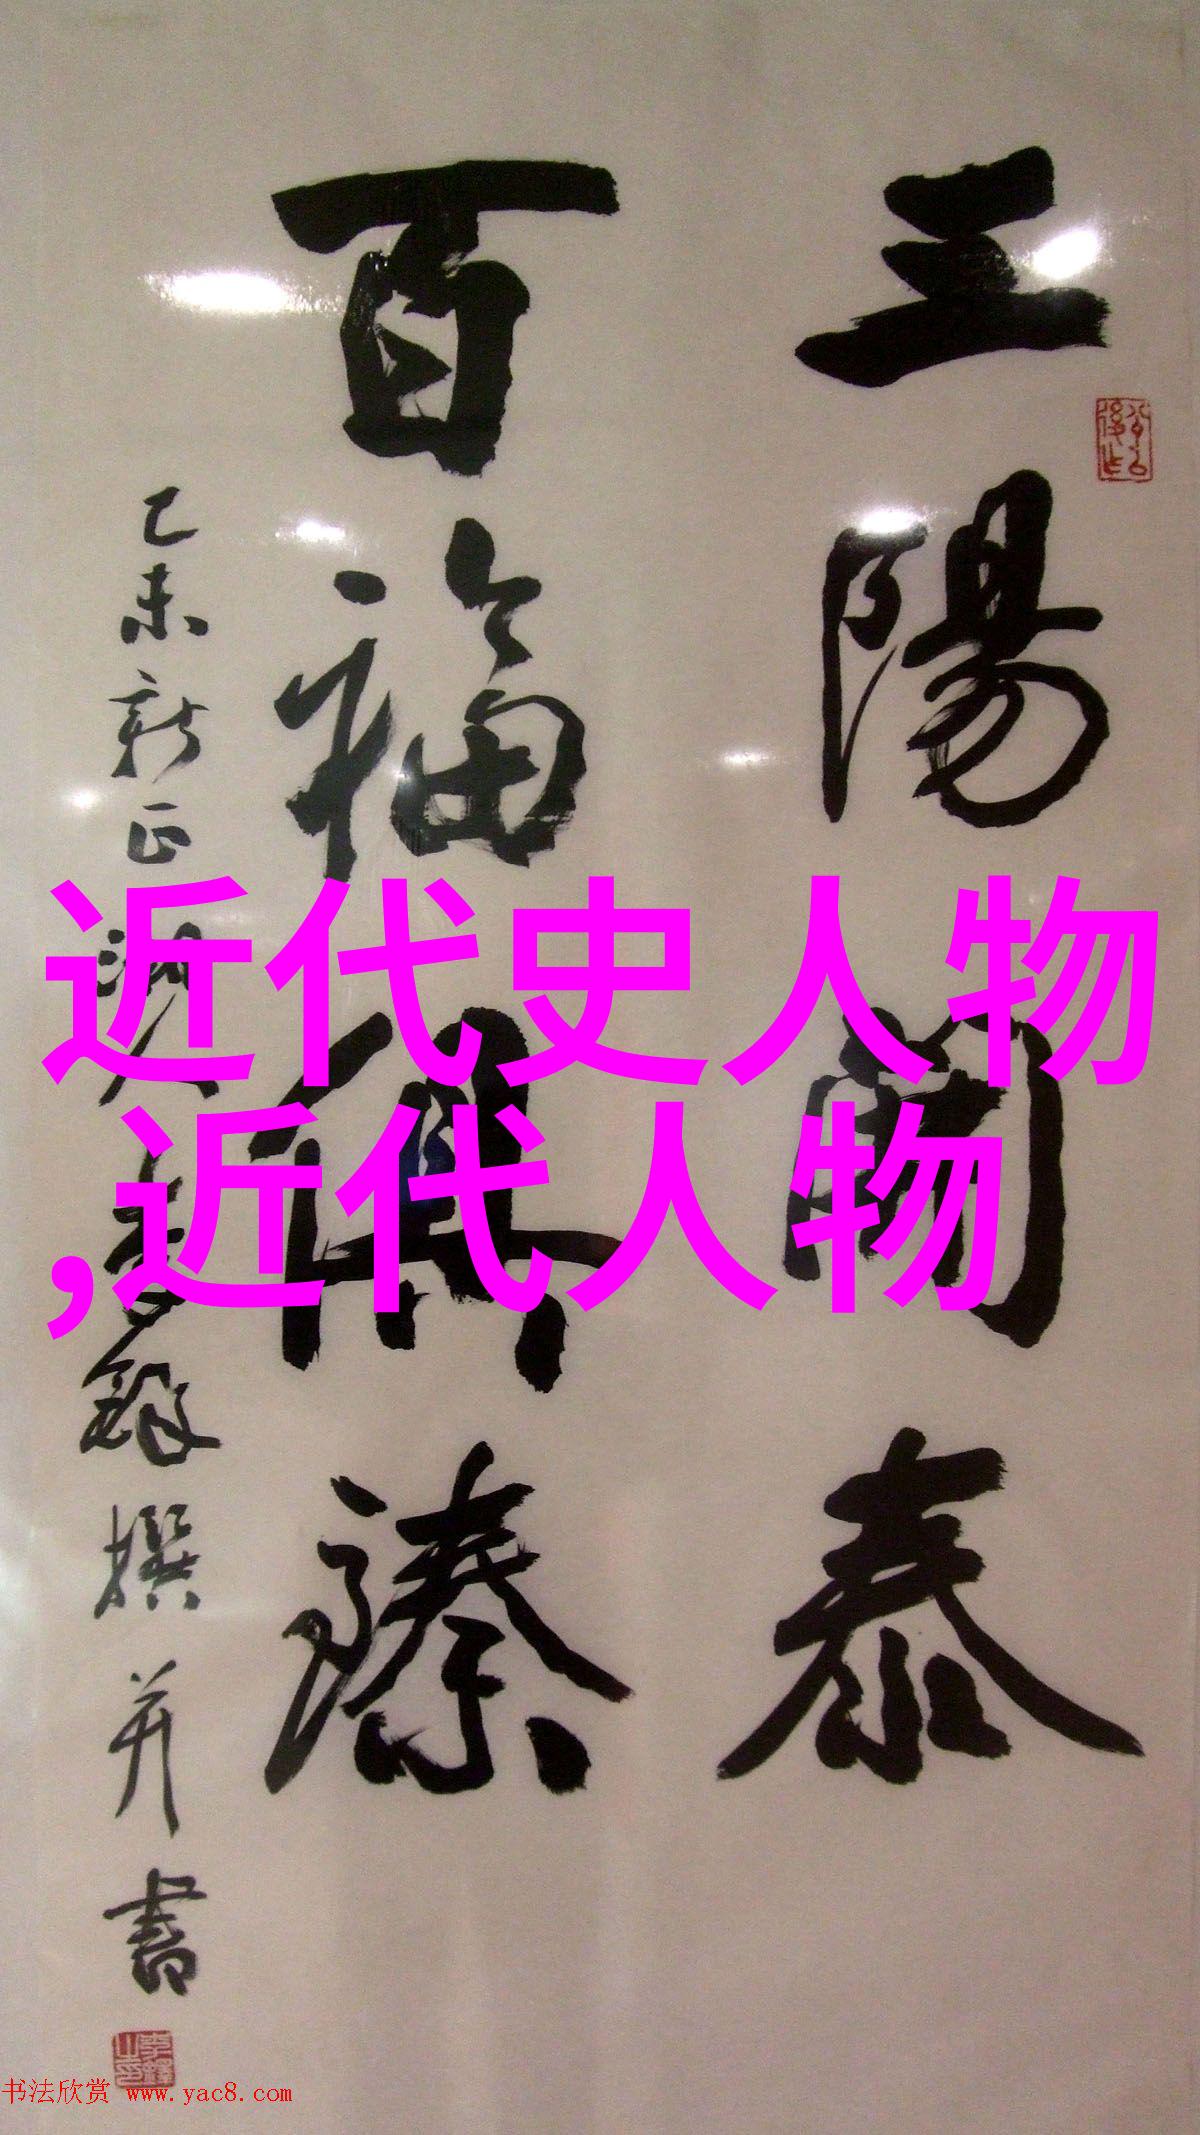 三陽開泰
百福俱臻
乙未新正湖人李鐸撰并書
近代史人物
,近代人物
李鐸
书法欣赏 www.yac8.com